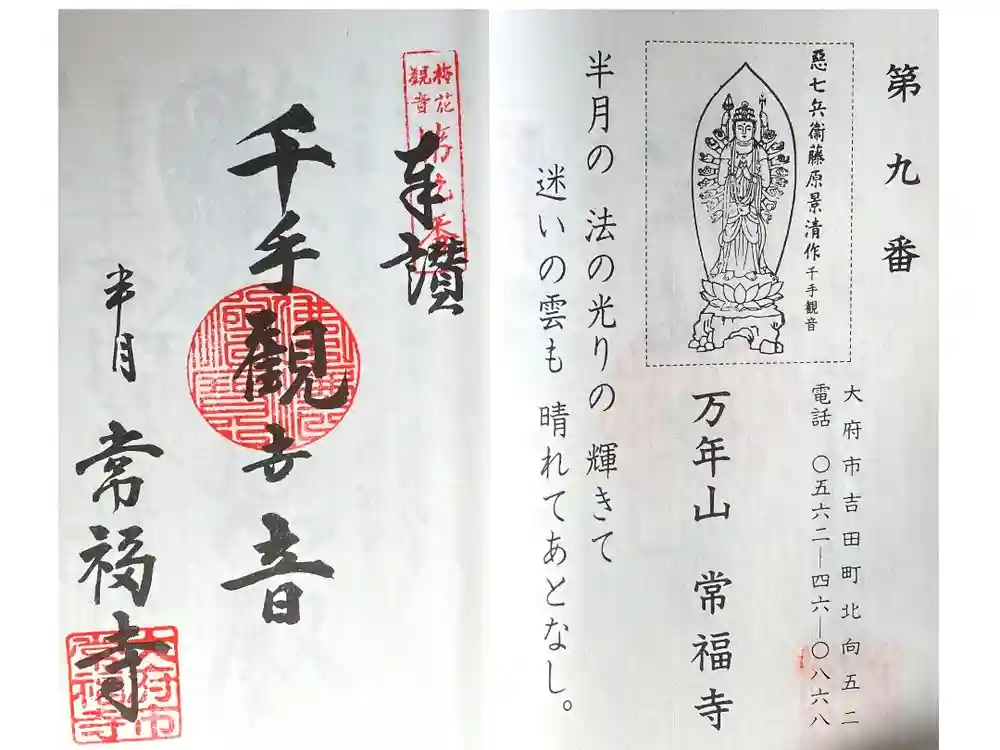 第九番
惡七兵衞藤原景清作千手観音
大府市吉田町北向五二
電話 〇五六二―四六―〇八六八
万年山 常福寺
半月の 法の光りの 輝きて
迷いの雲も 晴れてあとなし。
梅花
觀音
第九番
奉讃
千手観世音
半月 常福寺
大府市
常福寺